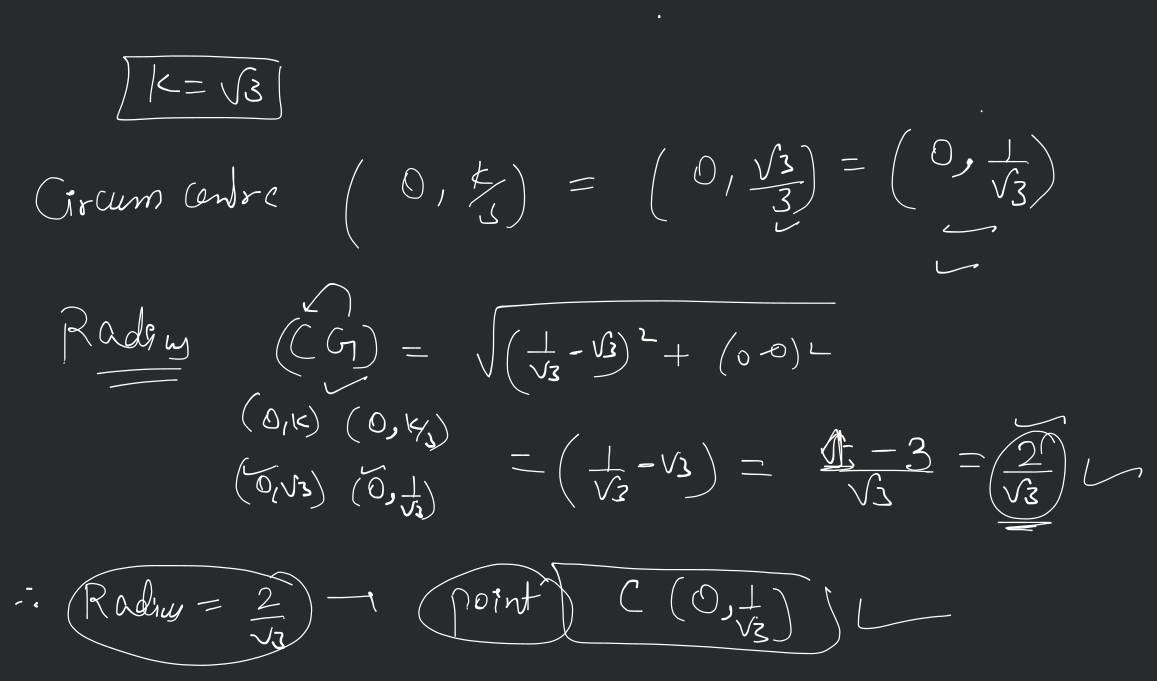 K = √3
Circum centre (0, K/3) = (0, √3/3) = (0, 1/√3)
Radius (CG) = √((1/√3 - √3)² + (0-0)²
(0,K) (0, K/3)
(0,√3) (0, 1/√3)
= (1/√3 - √3) = 1 - 3/√3 = 2/√3
∴ Radius = 2/√3 → point C (0, 1/√3)